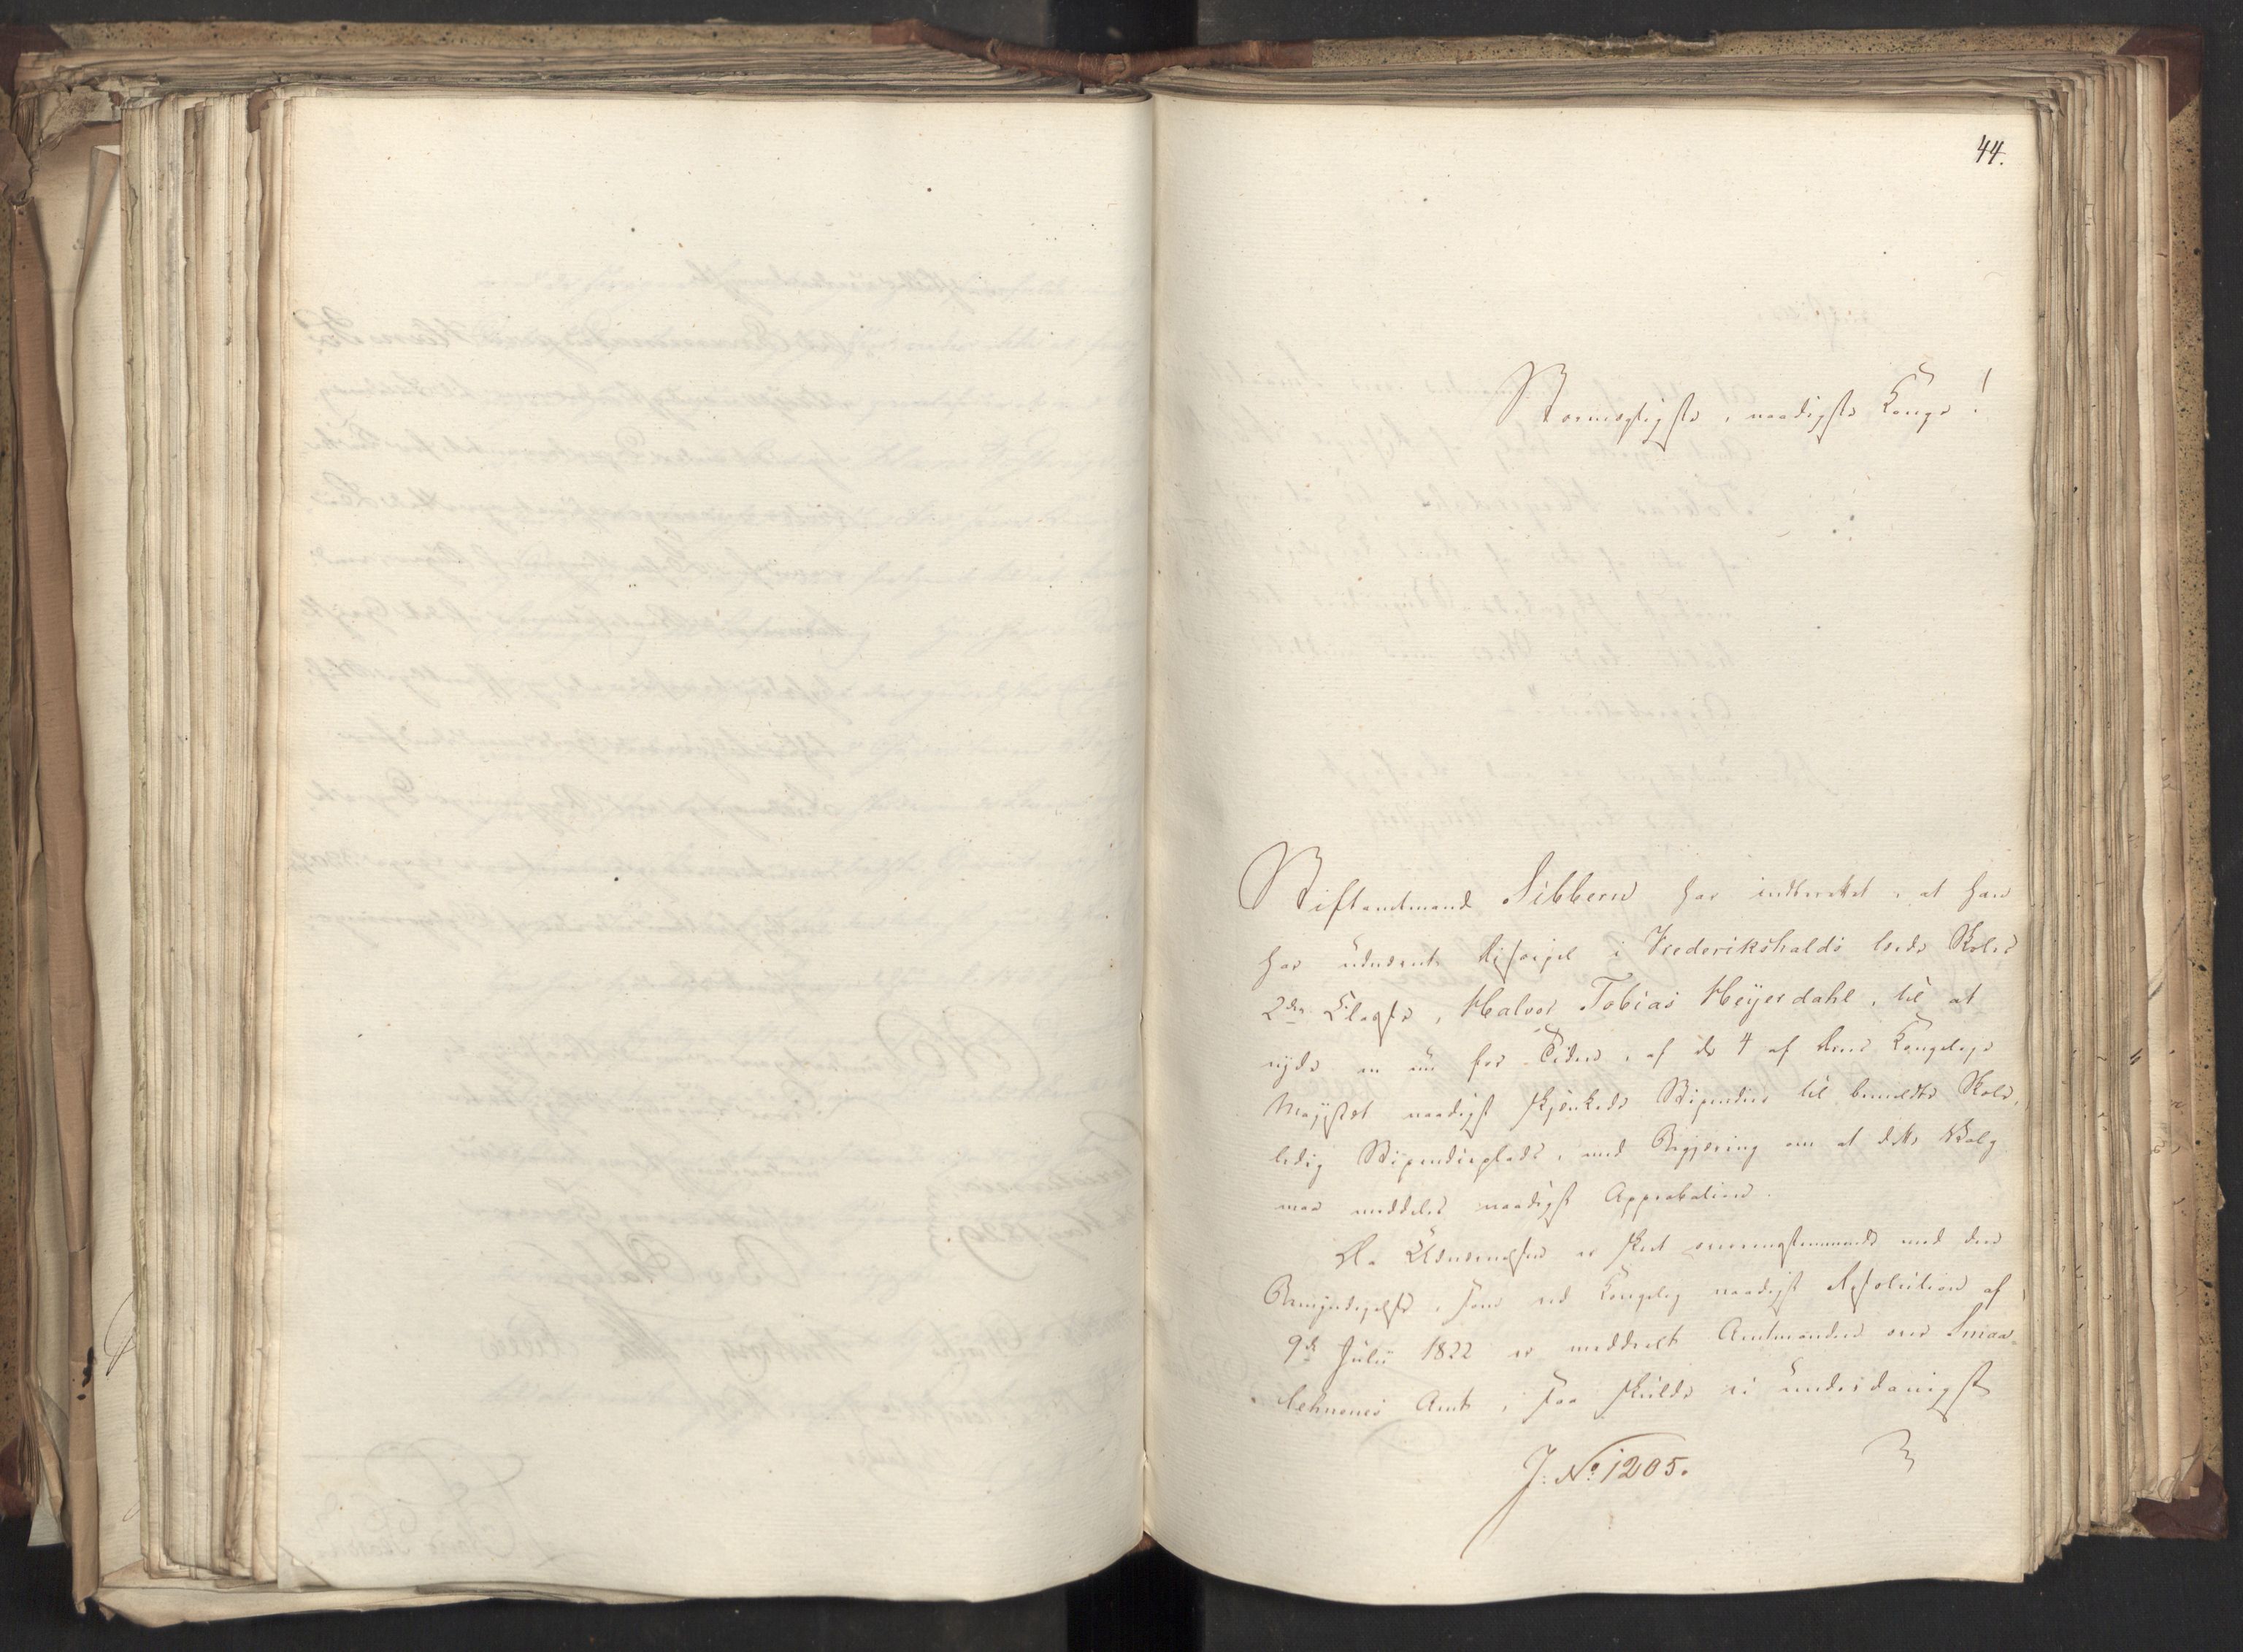 44.
Stormægtigste, naadigste Konge!
Stiftamtmand Sibbern har indberettet, at han
har udnævnt Discipel i Frederikshalds lærde Skoles
2den Classe, Halvor Tobias Heyerdahl, til at
nyde en nu for Tiden, af de 4 af Deres Kongelige
Majestæt naadigst skjænkede Stipendier til bemeldte Skole,
ledig Stipendieplads, med Begjering om at dette Valg
maa meddeles naadigst Approbation.
Da Udnævnelsen er skeet overeensstemmende med den
Bemyndigelse, som ved Kongelig naadigst Resolution af
9de Julii 1822 er meddeelt Amtmanden over Smaa-
lehnenes Amt, saa skulde vi underdanigst
J. No 1205.